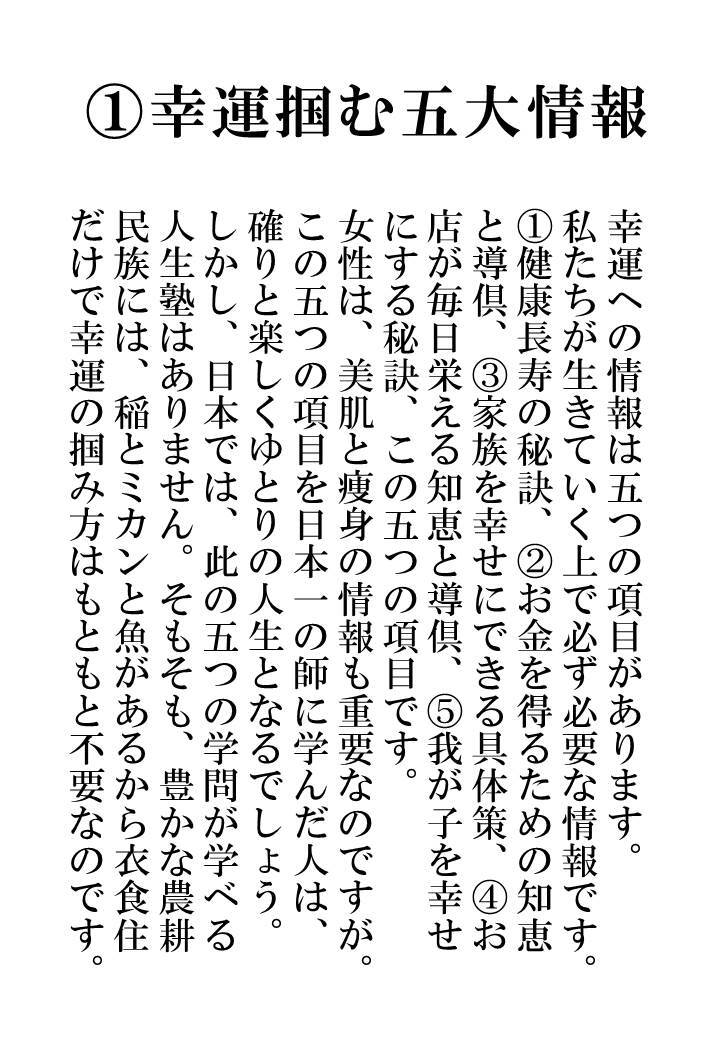 ①幸運掴む五大情報
幸運への情報は五つの項目があります。
私たちが生きていく上で必ず必要な情報です。
①健康長寿の秘訣、②お金を得るための知恵
と導倶、③家族を幸せにできる具体策、④お
店が毎日栄える知恵と導倶、⑤我が子を幸せ
にする秘訣、この五つの項目です。
女性は、美肌と痩身の情報も重要なのですが。
この五つの項目を日本一の師に学んだ人は、
確りと楽しくゆとりの人生となるでしょう。
しかし、日本では、此の五つの学問が学べる
人生塾はありません。そもそも、豊かな農耕
民族には、稲とミカンと魚があるから衣食住
だけで幸運の掴み方はもともと不要なのです。